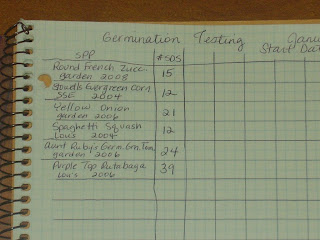 Germination Testing Janu
Start Dat
SPP #SDS
Round French Zucc-
garden 2008 15
Stowell's Evergreen Corn
SSE 2004 12
Yellow Onion
garden 2006 21
Spaghetti Squash
Lou's 2004 12
Aunt Ruby's Germ. Grn. Tom.
garden 2006 24
Purple Top Rutabaga
Lou's 2006 39